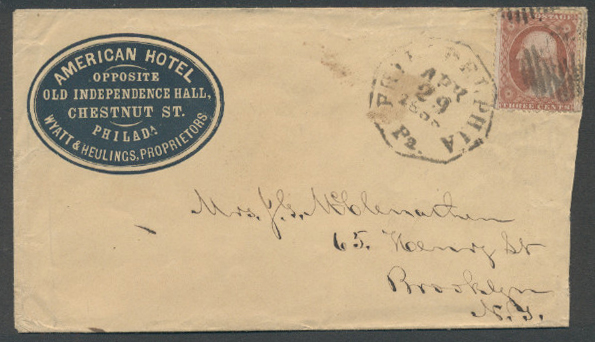 AMERICAN HOTEL
OPPOSITE
OLD INDEPENDENCE HALL,
CHESTNUT ST.
PHILADA
WYATT & HEULINGS, PROPRIETORS
PHILADELPHIA
APR
29
Pa.
POSTAGE
THREE CENTS
Mrs. J. G. McClenathen
65. Henry St
Brooklyn
N.Y.